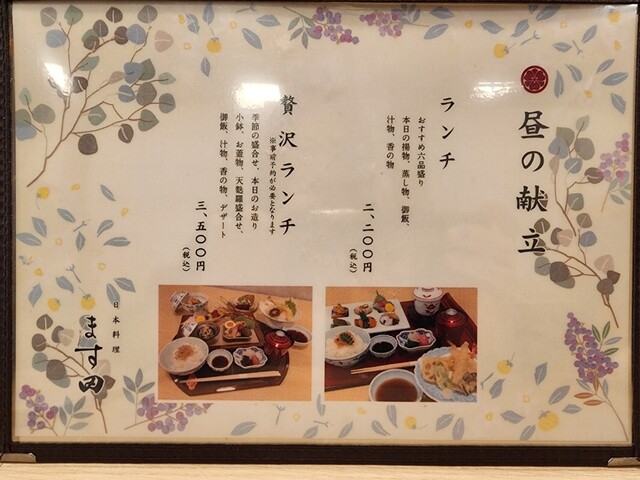 昼の献立
ランチ
おすすめ六品盛り
本日の揚物、蒸し物、御飯、
汁物、香の物
二、二〇〇円
(税込)
贅沢ランチ
※事前予約が必要となります
季節の盛合せ、本日のお造り
小鉢、お蓋物、天麩羅盛合せ、
御飯、汁物、香の物、デザート
三、五〇〇円
(税込)
日本料理
ます田